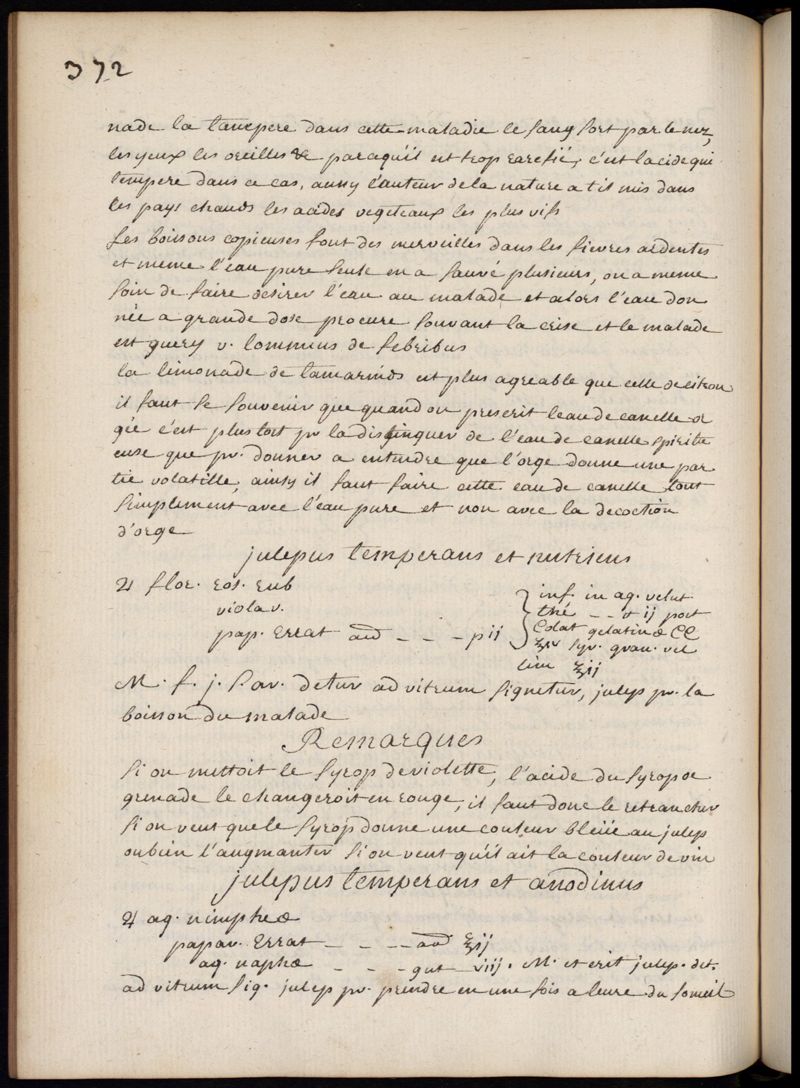 372
nade la tanspere dans cette maladie le sang sort par le nez,
les yeux les oreilles &c paraqu'il est trop rarefié, c'est lacide qui
tempere dans ce cas, aussy l'auteur de la nature a t il mis dans
les pays chauds les acides vegeteaux les plus vifs
Les boissons copieuses font des merveilles dans les fievres ardentes
et meme l'eau pure seule en a sauvé plusieurs, on a meme
soin de faire desirer l'eau au malade et alors l'eau don
née a grande dose procure souvant la crise et le malade
est guery v. lommius de febribus
la limonade de tamarinds est plus agreable que celle de citron
il faut se souvenir que quand on prescrit leau de canelle or
gée c'est plus tost pr la distinguer de l'eau de canelle spiritu
euse que pr. donner a entendre que l'orge donne une par
tie volatille, ainsy il faut faire cette eau de canelle tout
simplement avec l'eau pure et non avec la decoction
d'orge
julepus temperans et nutriens
♃ flor. ros. rub
violar.
pap. Errat aa – – – pij
inf. in aq. velut
thé – – ij post
Colat gelatinæ CC
℥iv syr. gran. vel
lim ℥ij
M. f. j. s. ar. detur ad vitrum signetur, julep pr. la
boisson du malade
Remarques
si on mettoit le syrop de violette, l'acide du syrop de
grenade le changeroit en rouge, il faut donc le retrancher
si on veut que le syrop donne une couleur bleüe au julep
oubien l'augmanter si on veut qu'il ait la couleur de vin
julepus temperans et anodinus
♃ aq. nimpheæ
papav. Errat – – – aa ℥ij
aq. naphæ – – – gut viij. M. et erit julep. det.
ad vitrum sig. julep pr. prendre en une fois a leure du someil